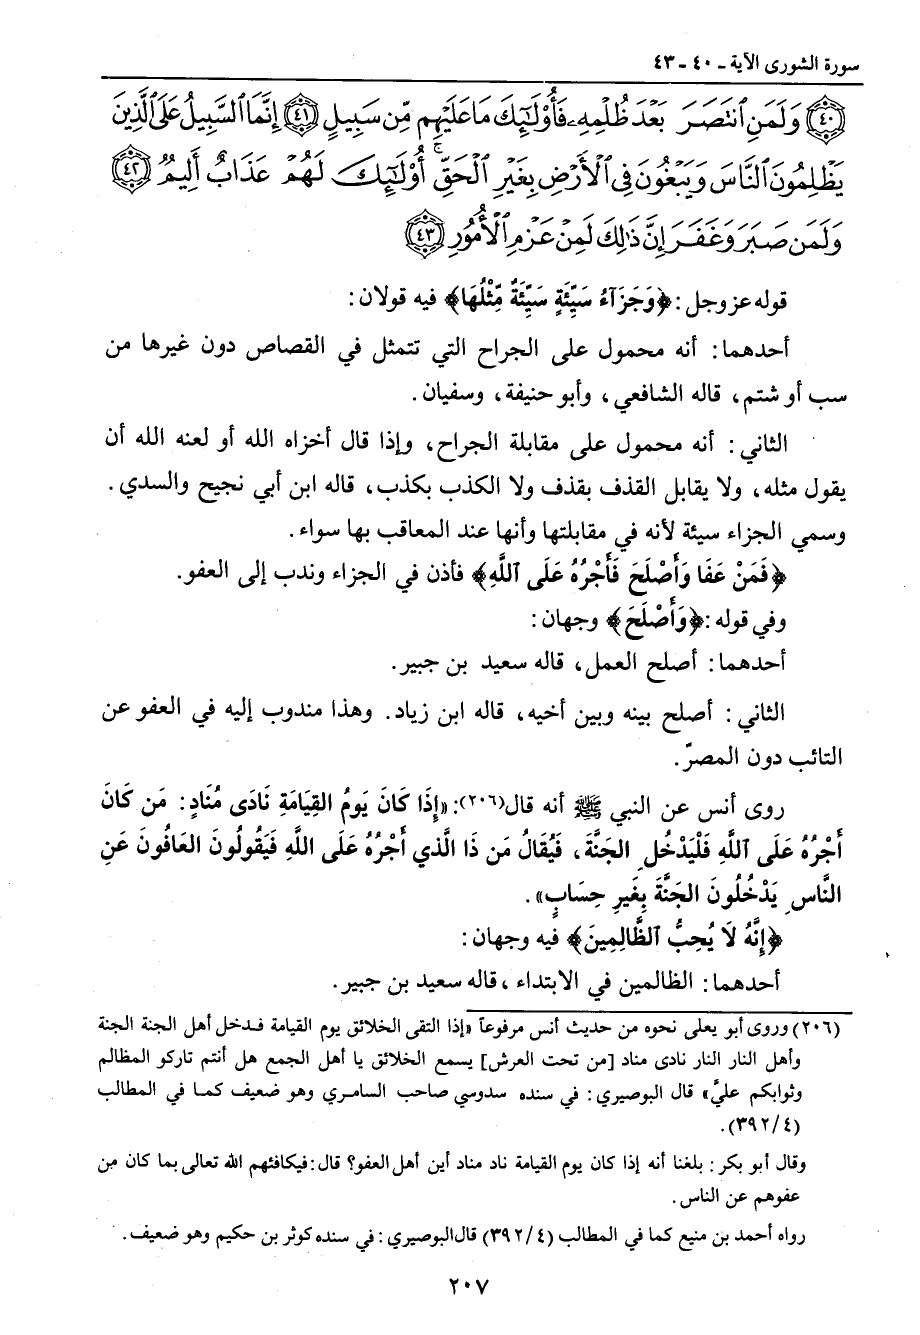 سورة الشورى الآية - ٤٠ - ٤٣
﴿٤٠﴾ وَلَمَنِ ٱنتَصَرَ بَعْدَ ظُلْمِهِۦ فَأُوْلَٰٓئِكَ مَا عَلَيْهِم مِّن سَبِيلٍ ﴿٤١﴾ إِنَّمَا ٱلسَّبِيلُ عَلَى ٱلَّذِينَ
يَظْلِمُونَ ٱلنَّاسَ وَيَبْغُونَ فِى ٱلْأَرْضِ بِغَيْرِ ٱلْحَقِّ ۚ أُوْلَٰٓئِكَ لَهُمْ عَذَابٌ أَلِيمٌ ﴿٤٢﴾
وَلَمَن صَبَرَ وَغَفَرَ إِنَّ ذَٰلِكَ لَمِنْ عَزْمِ ٱلْأُمُورِ ﴿٤٣﴾
قوله عز وجل: ﴿وَجَزَآءُ سَيِّئَةٍ سَيِّئَةٌ مِّثْلُهَا﴾ فيه قولان:
أحدهما: أنه محمول على الجراح التي تتمثل في القصاص دون غيرها من
سب أو شتم، قاله الشافعي، وأبو حنيفة، وسفيان.
الثاني: أنه محمول على مقابلة الجراح، وإذا قال أخزاه الله أو لعنه الله أن
يقول مثله، ولا يقابل القذف بقذف ولا الكذب بكذب، قاله ابن أبي نجيح والسدي.
وسمي الجزاء سيئة لأنه في مقابلتها وأنها عند المعاقب بها سواء.
﴿فَمَنْ عَفَا وَأَصْلَحَ فَأَجْرُهُ عَلَى ٱللَّهِ﴾ فأذن في الجزاء وندب إلى العفو.
وفي قوله: ﴿وَأَصْلَحَ﴾ وجهان:
أحدهما: أصلح العمل، قاله سعيد بن جبير.
الثاني: أصلح بينه وبين أخيه، قاله ابن زياد. وهذا مندوب إليه في العفو عن
التائب دون المصرّ.
روى أنس عن النبي ﷺ أنه قال(٢٠٦): «إِذَا كَانَ يَوْمُ القِيَامَةِ نَادَى مُنَادٍ: مَن كَانَ
أَجْرُهُ عَلَى ٱللَّهِ فَلْيَدْخُلِ الجَنَّةَ، فَيُقَالُ مَن ذَا الَّذِي أَجْرُهُ عَلَى اللَّهِ فَيَقُولُونَ العَافُونَ عَنِ
النَّاسِ يَدْخُلُونَ الجَنَّةَ بِغَيرِ حِسَابٍ».
﴿إِنَّهُ لَا يُحِبُّ ٱلظَّالِمِينَ﴾ فيه وجهان:
أحدهما: الظالمين في الابتداء، قاله سعيد بن جبير.
(٢٠٦) وروى أبو يعلى نحوه من حديث أنس مرفوعاً «إذا التقى الخلائق يوم القيامة فدخل أهل الجنة الجنة
وأهل النار النار نادى مناد [من تحت العرش] يسمع الخلائق يا أهل الجمع هل أنتم تاركو المظالم
وثوابكم عليَّ» قال البوصيري: في سنده سدوسي صاحب السامري وهو ضعيف كما في المطالب
(٣٩٢/٤).
وقال أبو بكر: بلغنا أنه إذا كان يوم القيامة ناد مناد أين أهل العفو؟ قال: فيكافئهم الله تعالى بما كان من
عفوهم عن الناس.
رواه أحمد بن منيع كما في المطالب (٣٩٢/٤) قال البوصيري: في سنده كوثر بن حكيم وهو ضعيف.
٢٠٧